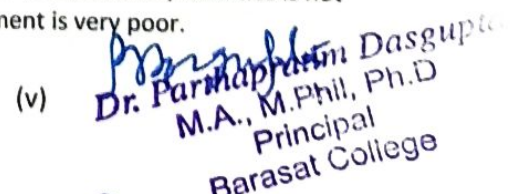 ment is very poor.
(v)
Dr. Parthapratim Dasgupta
M.A., M.Phil, Ph.D
Principal
Barasat College